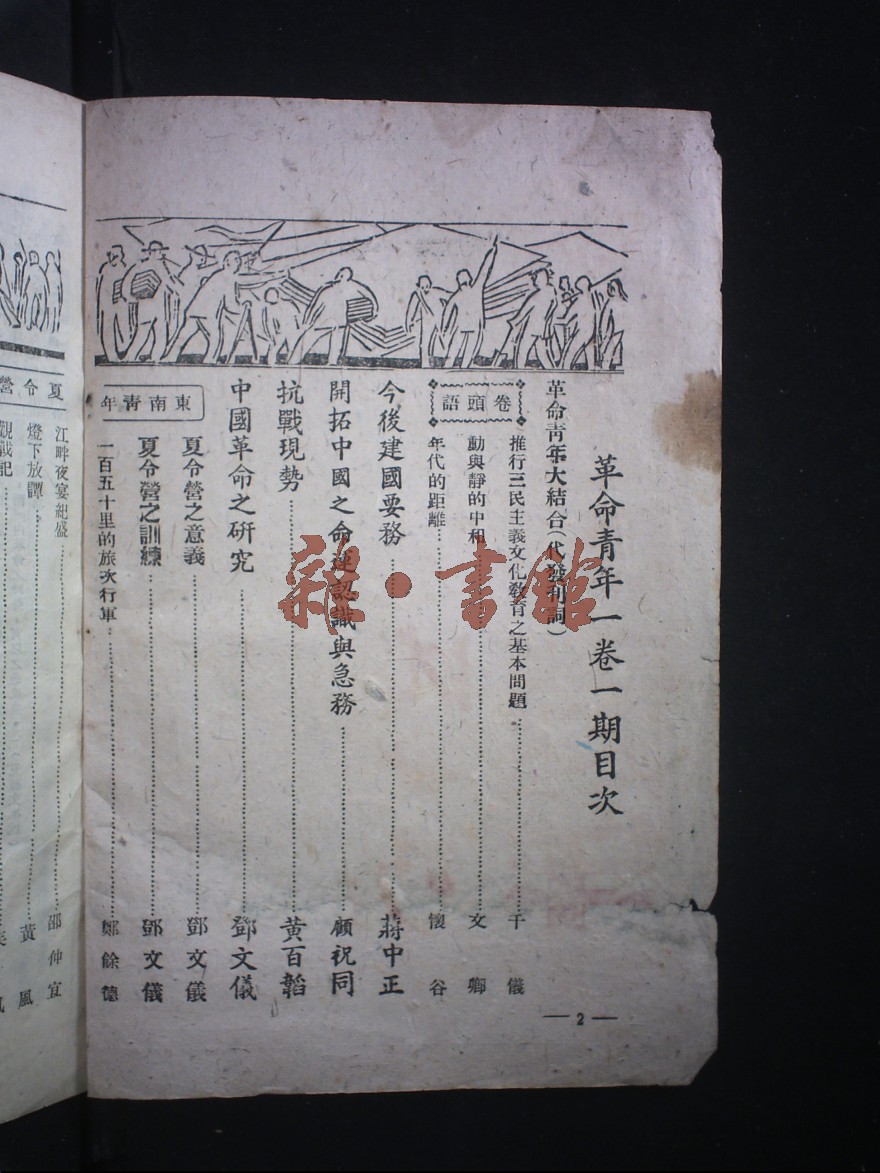 革命青年一卷一期目次
革命青年大結合(代發刊詞)
卷頭語
推行三民主義文化敎育之基本問題 干儀
動與靜的中和 文卿
年代的距離 懷谷
今後建國要務 蔣中正
開拓中國之命運認識與急務 顧祝同
抗戰現勢 黃百韜
中國革命之研究 鄧文儀
東南靑年
夏令營之意義 鄧文儀
夏令營之訓練 鄧文儀
一百五十里的旅次行軍 鄭餘德
— 2 —
夏令營
江畔夜宴紀盛 邵仲宜
燈下放譚 黃風
觀戰記
雜·書館